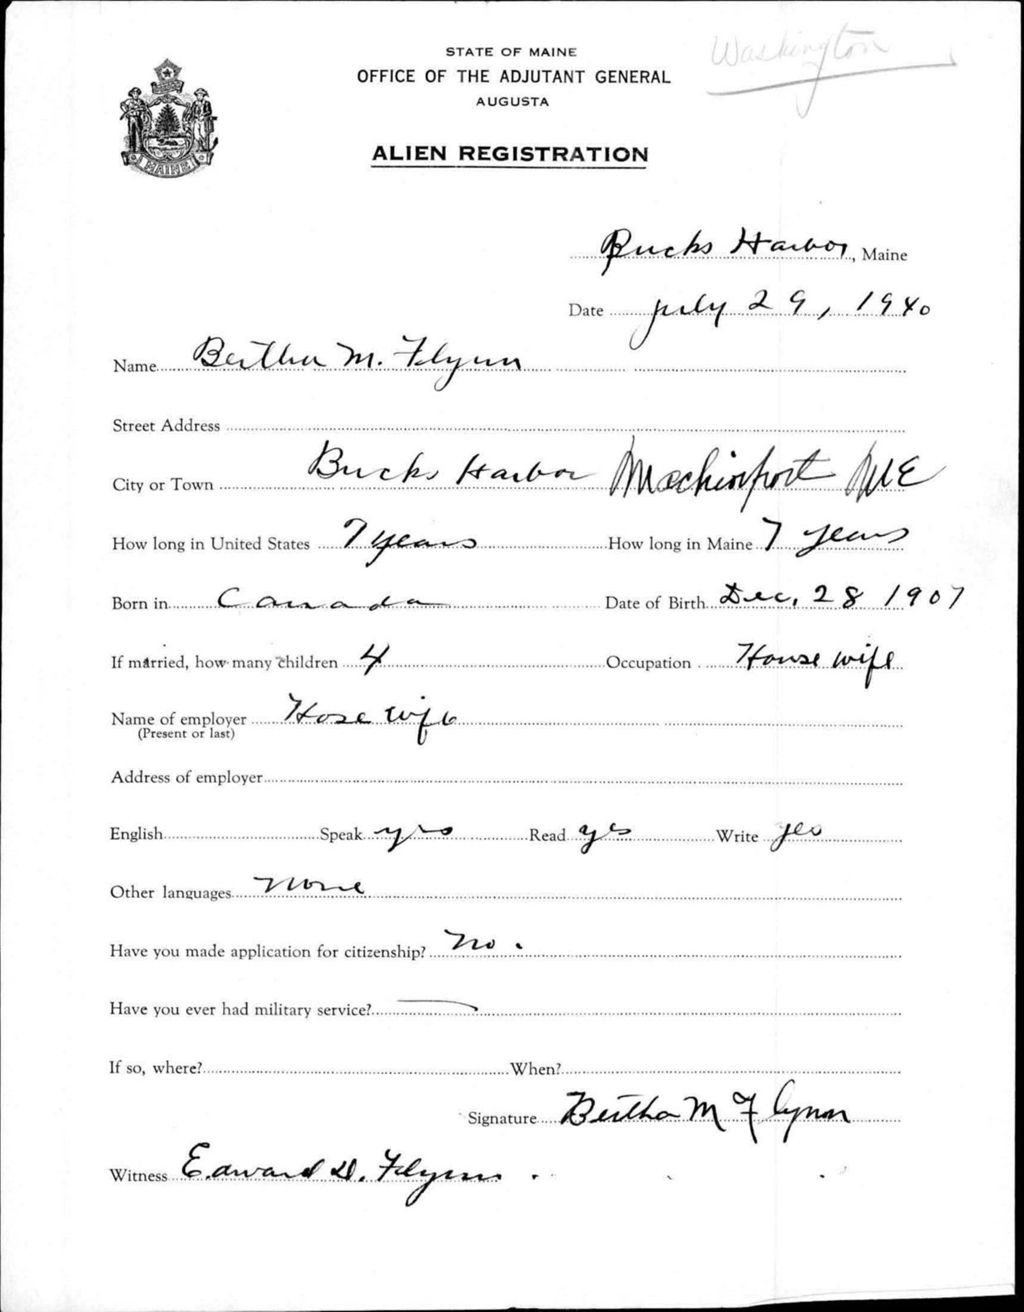 Washington
STATE OF MAINE
OFFICE OF THE ADJUTANT GENERAL
AUGUSTA
MAINE
ALIEN REGISTRATION
Bucks Harbor, Maine
Date July 29, 1940
Name Bertha M. Flynn
Street Address
City or Town Bucks Harbor Machiasport ME
How long in United States 7 years How long in Maine 7 years
Born in Canada Date of Birth Dec. 28 1907
If married, how many children 4 Occupation House wife
Name of employer Hose wife
(Present or last)
Address of employer
English Speak yes Read yes Write yes
Other languages none
Have you made application for citizenship? No.
Have you ever had military service? —
If so, where? When?
Signature Bertha M Flynn
Witness Edward D. Flynn